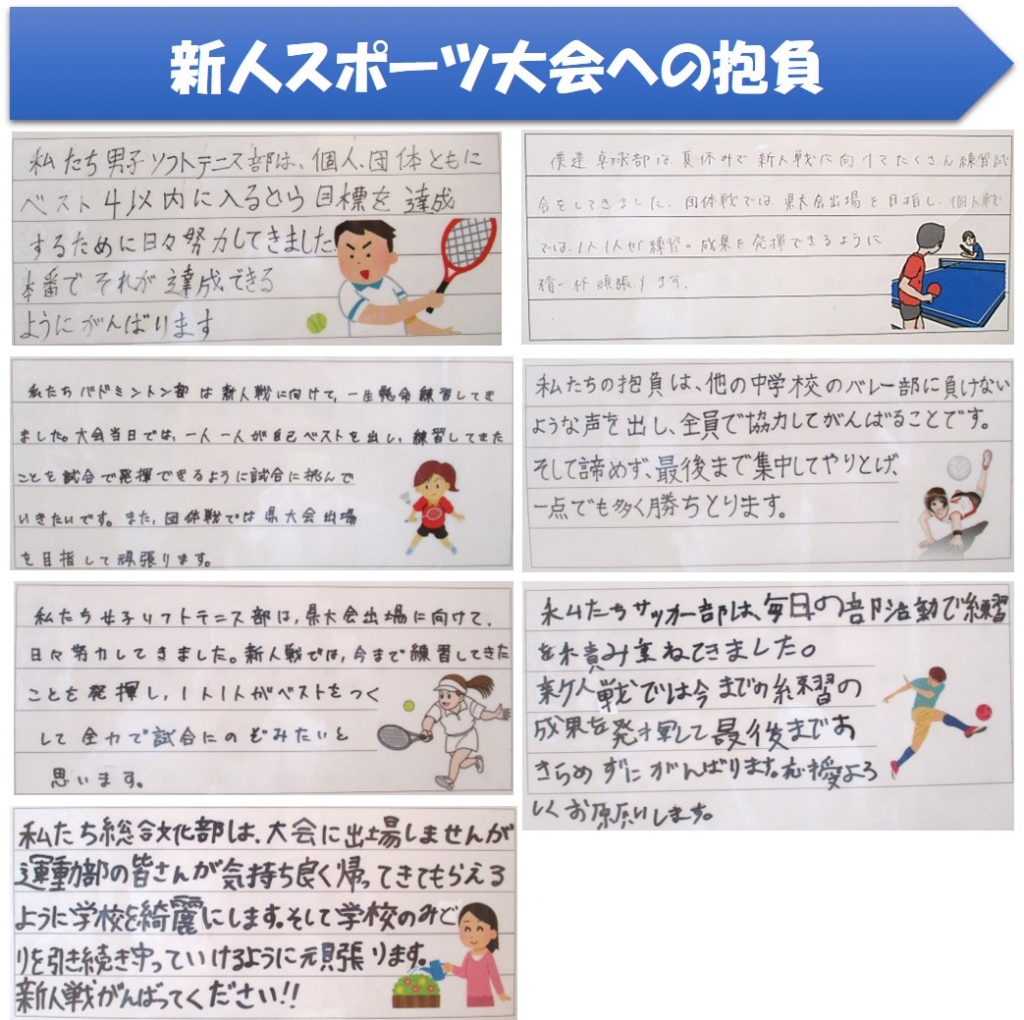 新人スポーツ大会への抱負
私たち男子ソフトテニス部は、個人、団体ともに
ベスト4以内に入るとら目標を達成
するために日々努力してきました
本番でそれが達成できる
ようにがんばります
僕達卓球部は、夏休みで新人戦に向けてたくさん練習試
合をしてきました。団体戦では県大会出場を目指し、個人戦
では、1人1人が練習の成果を発揮できるように
精一杯頑張ります。
私たちバドミントン部は新人戦に向けて、一生懸命練習してき
ました。大会当日では、一人一人が自己ベストを出し、練習してきた
ことを試合で発揮できるように試合に挑んで
いきたいです。また、団体戦では県大会出場
を目指して頑張ります。
私たちの抱負は、他の中学校のバレー部に負けない
ような声を出し、全員で協力してがんばることです。
そして諦めず、最後まで集中してやりとげ、
一点でも多く勝ちとります。
私たち女子ソフトテニス部は、県大会出場に向けて、
日々努力してきました。新人戦では、今まで練習してきた
ことを発揮し、1人1人がベストをつく
して全力で試合にのぞみたいと
思います。
私たちサッカー部は、毎日の部活動で練習
を積み重ねてきました。
新人戦では今までの練習の
成果を発揮して最後まであ
きらめずにがんばります。応援よろ
しくお願いします。
私たち総合文化部は、大会に出場しませんが
運動部の皆さんが気持ち良く帰ってきてもらえる
ように学校を綺麗にします。そして学校のみど
りを引き続き守っていけるように頑張ります。
新人戦がんばってください!!